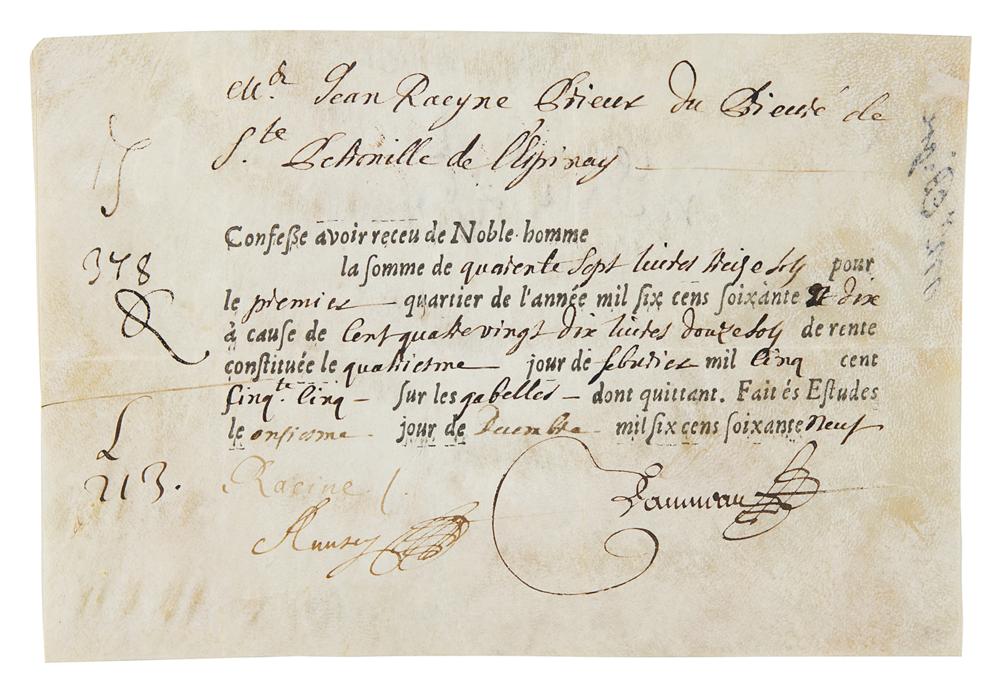 Mr. Jean Racyne Prieur du Prieuré de
Ste Petronille de l'Espinay
Confeße avoir receu de Noble homme
378
la somme de quarente sept livres treize sols pour
le premier quartier de l'année mil six cens soixante & dix
à cause de Cent quatre vingt dix livres douze sols de rente
constituée le quatriesme jour de febvrier mil Cinq cent
Cinqte Cinq sur les gabelles dont quittant. Fait és Estudes
le onsiesme jour de Decembre mil six cens soixante Neuf
213.
Racine